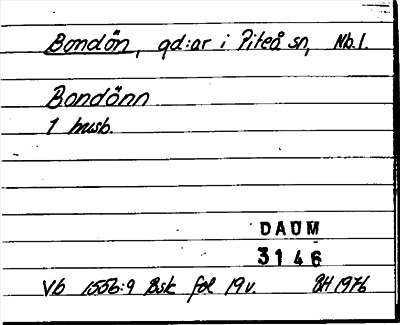 Bondön, gd:ar i Piteå sn, Nb.l.
Bondönn
1 husb.
DAUM
3146
Vb 1556:9 Bsk fol 19v. BH 1976